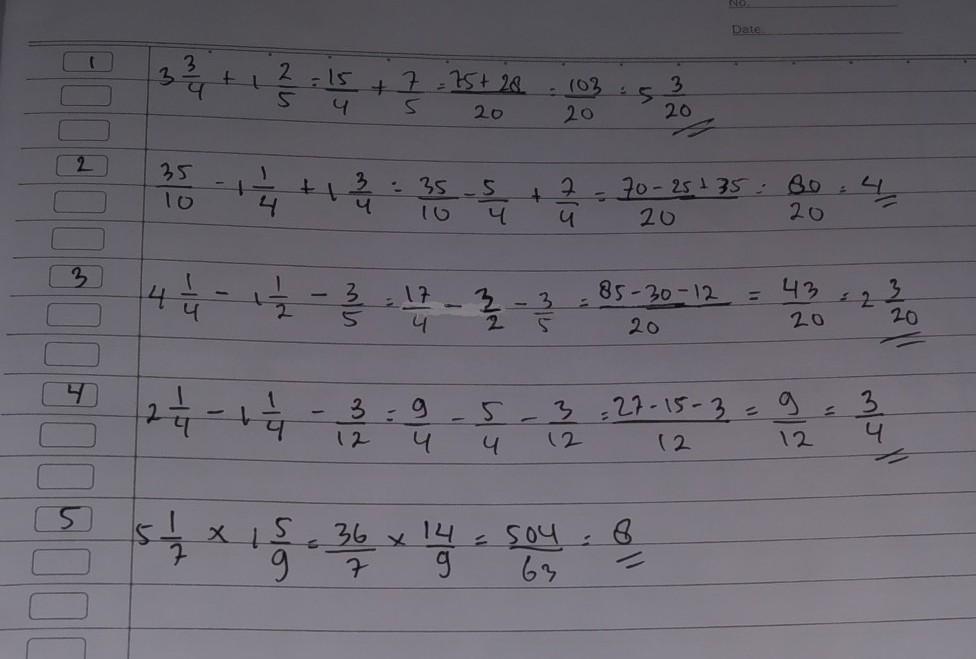 No.
Date.
1 3 3/4 + 1 2/5 = 15/4 + 7/5 = 75+28/20 = 103/20 = 5 3/20
2 35/10 - 1 1/4 + 1 3/4 = 35/10 - 5/4 + 7/4 = 70-25+35/20 = 80/20 = 4
3 4 1/4 - 1 1/2 - 3/5 = 17/4 - 3/2 - 3/5 = 85-30-12/20 = 43/20 = 2 3/20
4 2 1/4 - 1 1/4 - 3/12 = 9/4 - 5/4 - 3/12 = 27-15-3/12 = 9/12 = 3/4
5 5 1/7 × 1 5/9 = 36/7 × 14/9 = 504/63 = 8